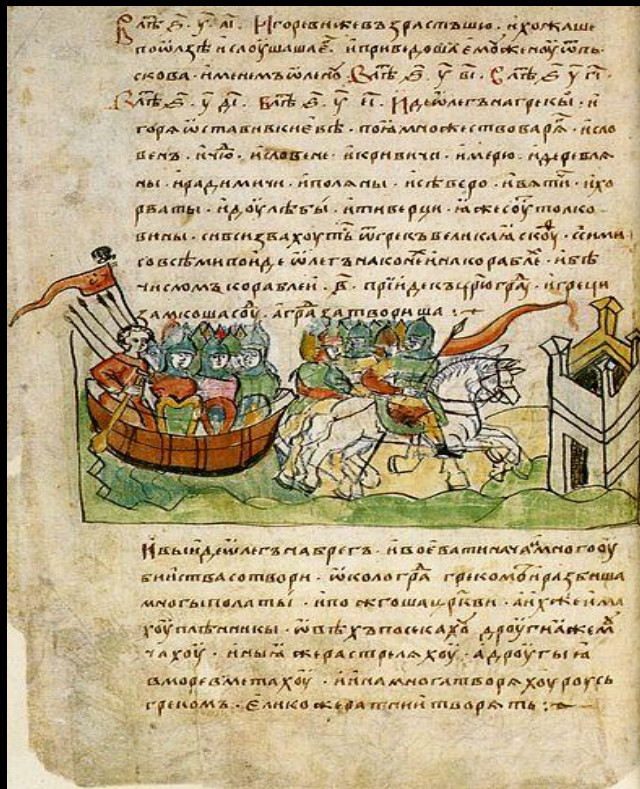 В лѣт҃ ҂ѕ҃ . у҃ а҃і . Игореви же възрастъшю . и хожаше
по ѡлзѣ и слоушаша е҃ . и приведоша ємоу женоу ѿ пь
скова . именемъ ѡлено . В лѣт҃ ҂ѕ҃ . у҃ в҃і . В лѣт҃ ҂ѕ҃ у҃ г҃і .
В лѣт҃ ҂ѕ҃ . у҃ д҃і . В лѣт҃ ҂ѕ҃ . у҃ е҃і . Иде ѡлегъ на грекы . и
горѧ ѡставив киевѣ . поѧ множество варѧ . и сло
венъ . и чю . и словене . и кривичи . и мерю . и деревлѧ
ны . и радимичи . и полѧны . и сѣверо . и вѧти . и хо
рваты . и доулѣбы . и тиверци . ꙗже соу толко
вины . си вси звахоуть ѿ грекъ великаꙗ скоу . с сими
со всѣми поиде ѡлегъ на коне и на корабле . и бѣ
числомъ кораблеи . в҃ . прїиде къ ц҃рюграу . и греци
замкоша соу . а гра затвориша :
И выиде ѡлегъ на брегъ . и воевати нача . и много оу
бииства сотвори . ѡколо гра греком . и разбиша
многы полаты . и пожгоша ц҃ркви . а их же има
хоу плѣнникы . ѡвѣхъ посекахо дроугиа же м
чахоу . иныа же растрелѧхоу . а дроугыа
в море вметахоу . и ина многа творѧхоу роусь
грекомъ . елико же ратнии творѧть :